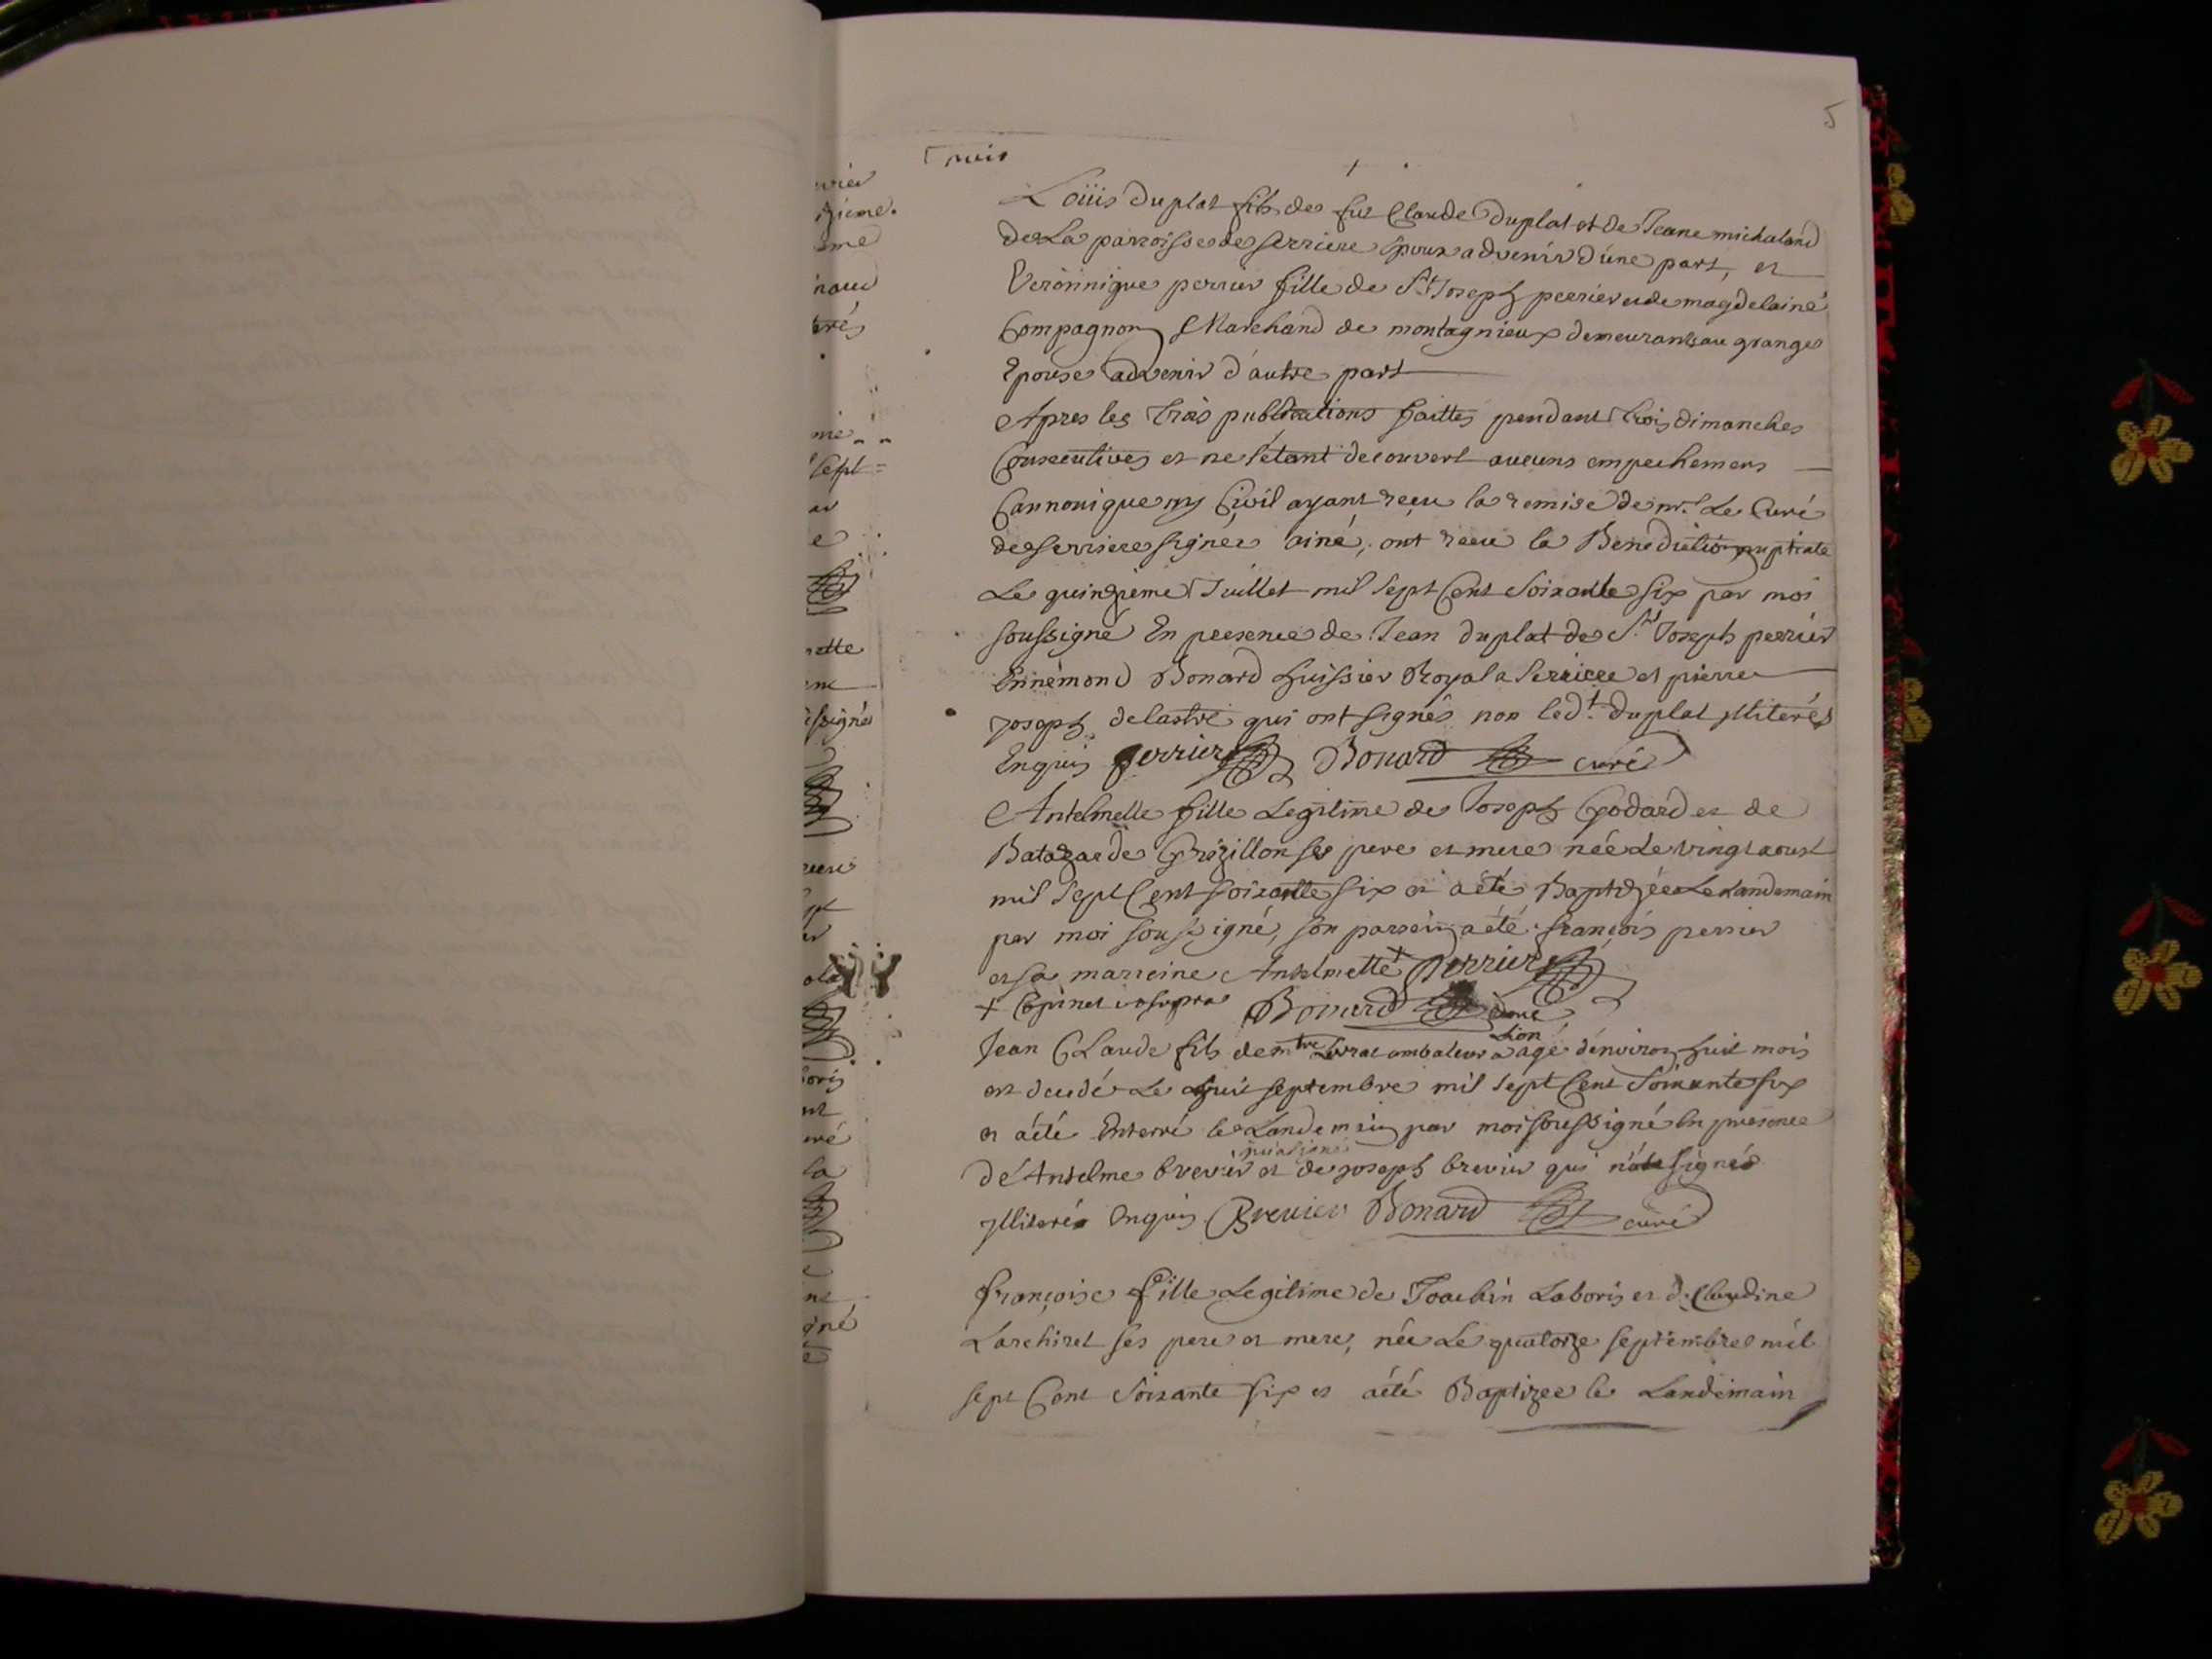 5
Loüis Duplat fils de fut Claude Duplat et de Jeane michaland
de La parroisse de serriere Epoux advenir d'une part, et
Veronnique perrier fille de Sr Joseph perrier et de magdelaine
Compagnon Marchand de montagnieux demeurants au granges
Epouse advenir d'autre part
Apres les trois publications faittes pendant trois dimanches
Consecutives et ne s'etant decouvert aucuns empechemens
Cannonique ny Civil ayant reçu la remise de mr Le Curé
de serriere signée ainé, ont reçu la Benediction nuptiale
Le quinzieme Juillet mil sept Cent Soixante six par moi
soussigné En presence de Jean Duplat de Sr Joseph perrier
Ennemond Bonard huissier Royal a Serriere et pierre
Joseph delastre qui ont signés non ledt Duplat illiterés
Enquis perrier Bonard curé
Antelmette fille Legitime de Joseph Godard et de
Grizillon ses pere et mere née Le vingt aoust
mil sept Cent soixante six et a été Baptizée Le Landemain
par moi soussigné, son parrein a été françois perrier
et sa marreine Antelmette + perrier
+ Cepinet ut supra Bonard curé
Jean Claude fils de mtre ambateur a Lion agé d'environ huit mois
est decedé Le huit septembre mil sept Cent Soixante six
et a été Enterré le Landemain par moi soussigné En presence
d'Antelme brevier qui a signé et de joseph brevier qui n'a signé
illiteré enquis Brevier Bonard curé
françoise fille Legitime de Joachin Laboris et de Claudine
Larchiret ses pere et mere, née Le quatorze septembre mil
sept Cent Soixante six et a été Baptizee le Landemain